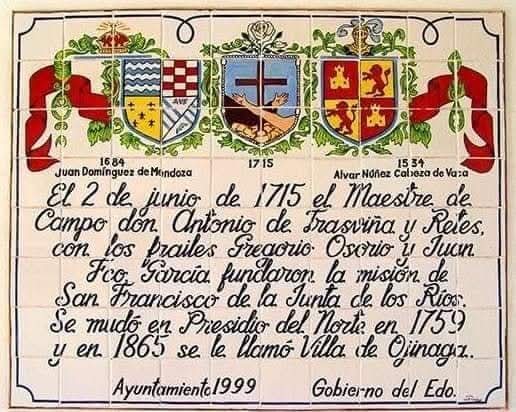 AVE
1684
Juan Domínguez de Mendoza
1715
1534
Alvar Núñez Cabeza de Vaca
El 2 de junio de 1715 el Maestre de
Campo don Antonio de Trasviña y Retes,
con los frailes Gregorio Osorio y Juan
Fco. García fundaron la misión de
San Francisco de la Junta de los Ríos.
Se mudó en Presidio del Norte en 1759
y en 1865 se le llamó Villa de Ojinaga.
Ayuntamiento 1999
Gobierno del Edo.